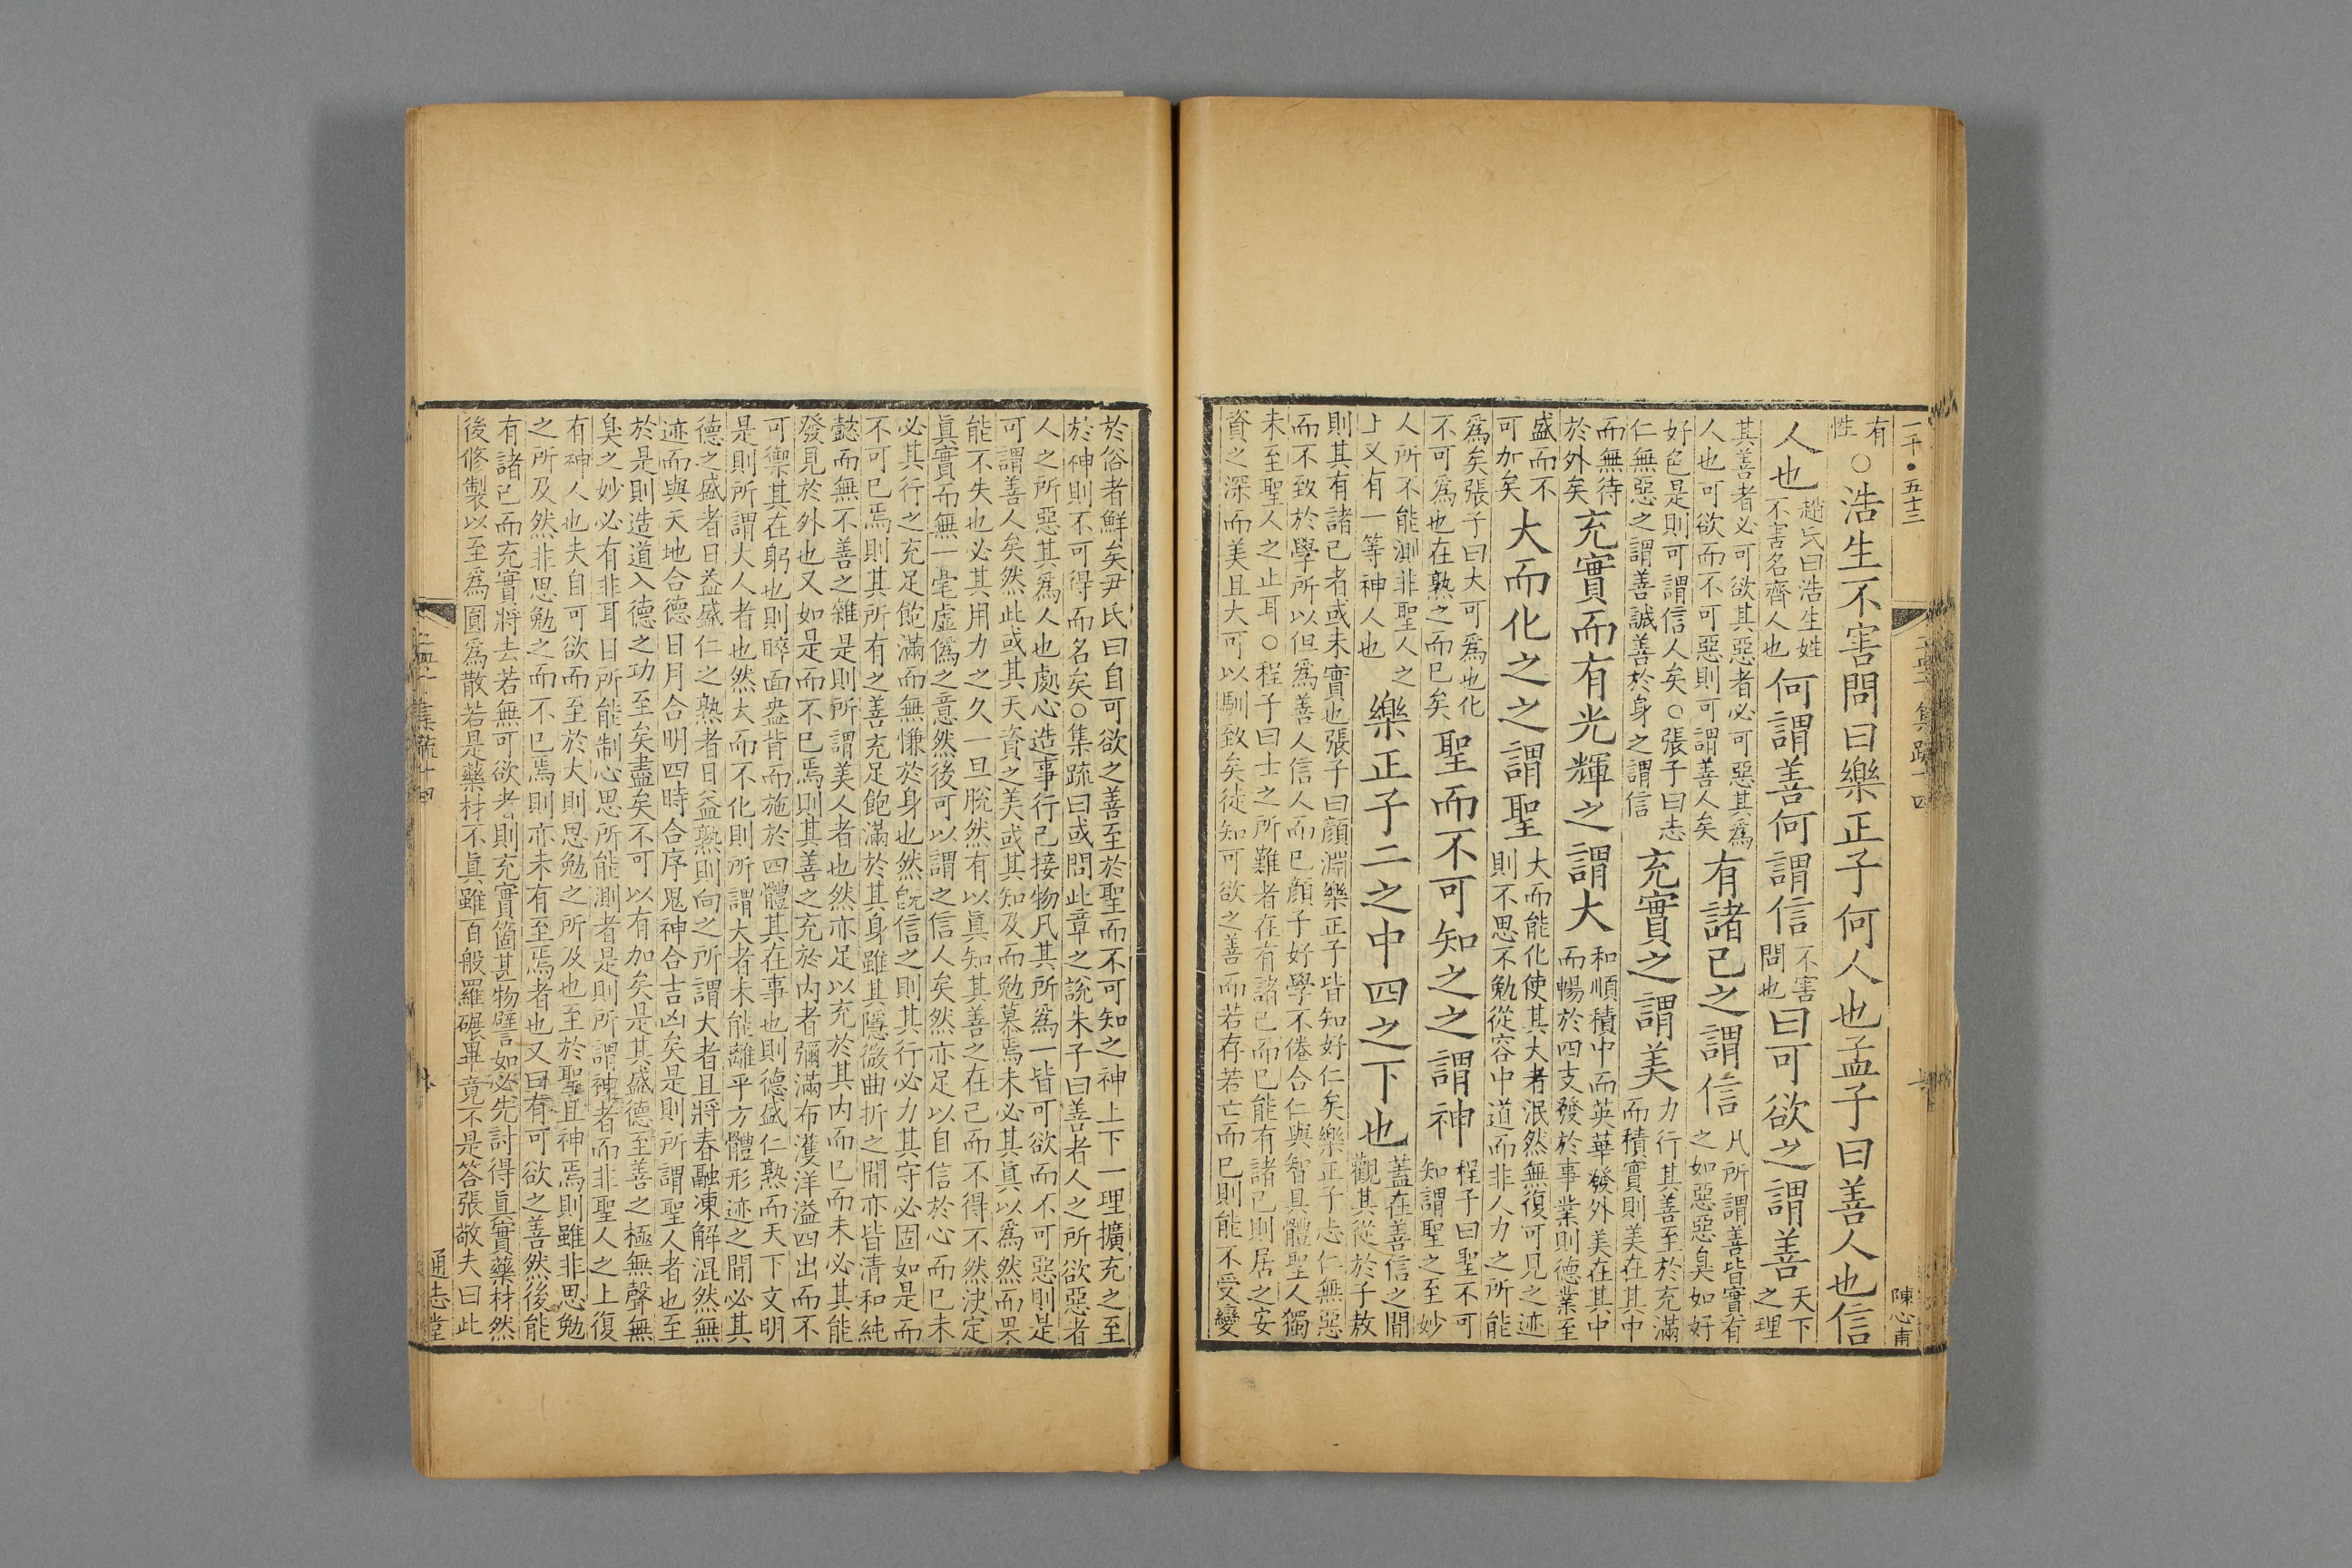 一千●五十三
陳心甫
有性○浩生不害問曰樂正子何人也孟子曰善人也信
人也趙氏曰浩生姓不害名齊人也何謂善何謂信不害問也曰可欲之謂善天下之理
其善者必可欲其惡者必可惡其爲人也可欲而不可惡則可謂善人矣有諸己之謂信凡所謂善皆實有之如惡惡臭如好
好色是則可謂信人矣○張子曰志仁無惡之謂善誠善於身之謂信充實之謂美力行其善至於充滿而積實則美在其中
而無待於外矣充實而有光輝之謂大和順積中而英華發外美在其中而暢於四支發於事業則德業至
盛而不可加矣大而化之之謂聖大而能化使其大者泯然無復可見之迹則不思不勉從容中道而非人力之所能
爲矣張子曰大可爲也化不可爲也在熟之而已矣聖而不可知之之謂神程子曰聖不可知謂聖之至妙
人所不能測非聖人之上又有一等神人也樂正子二之中四之下也蓋在善信之間觀其從於子敖
則其有諸己者或未實也張子曰顏淵樂正子皆知好仁矣樂正子志仁無惡
而不致於學所以但爲善人信人而已顏子好學不倦合仁與智具體聖人獨
未至聖人之止耳○程子曰士之所難者在有諸己而已能有諸己則居之安
資之深而美且大可以馴致矣徒知可欲之善而若存若亡而已則能不受變
於俗者鮮矣尹氏曰自可欲之善至於聖而不可知之神上下一理擴充之至
於神則不可得而名矣○集疏曰或問此章之說朱子曰善者人之所欲惡者
人之所惡其爲人也處心造事行己接物凡其所爲一皆可欲而不可惡則是
可謂善人矣然此或其天資之美或其知及而勉慕焉未必其真以爲然而果
能不失也必其用力之久一旦脫然有以真知其善之在己而不得不然決定
眞實而無一毫虛僞之意然後可以謂之信人矣然亦足以自信於心而已未
必其行之充足飽滿而無慊於身也然旣信之則其行必力其守必固如是而
不可已焉則其所有之善充足飽滿於其身雖其隱微曲折之間亦皆清和純
懿而無不善之雜是則所謂美人者也然亦足以充於其内而已而未必其能
發見於外也又如是而不已焉則其善之充於内者彌滿布濩洋溢四出而不
可禦其在躬也則睟面盎背而施於四體其在事也則德盛仁熟而天下文明
是則所謂大人者也然大而不化則所謂大者未能離乎方體形迹之間必其
德之盛者日益盛仁之熟者日益熟則向之所謂大者且將春融凍解混然無
迹而與天地合德日月合明四時合序鬼神合吉凶矣是則所謂聖人者也至
於是則造道入德之功至矣盡矣不可以有加矣是其盛德至善之極無聲無
臭之妙必有非耳目所能制心思所能測者是則所謂神者而非聖人之上復
有神人也夫自可欲而至於大則思勉之所及也至於聖且神焉則雖非思勉
之所及然非思勉之而不已焉則亦未有至焉者也又曰有可欲之善然後能
有諸己而充實將去若無可欲者則充實箇甚物譬如必先討得眞實藥材然
後修製以至爲圓爲散若是藥材不眞雖百般羅碾畢竟不是答張敬夫曰此
通志堂